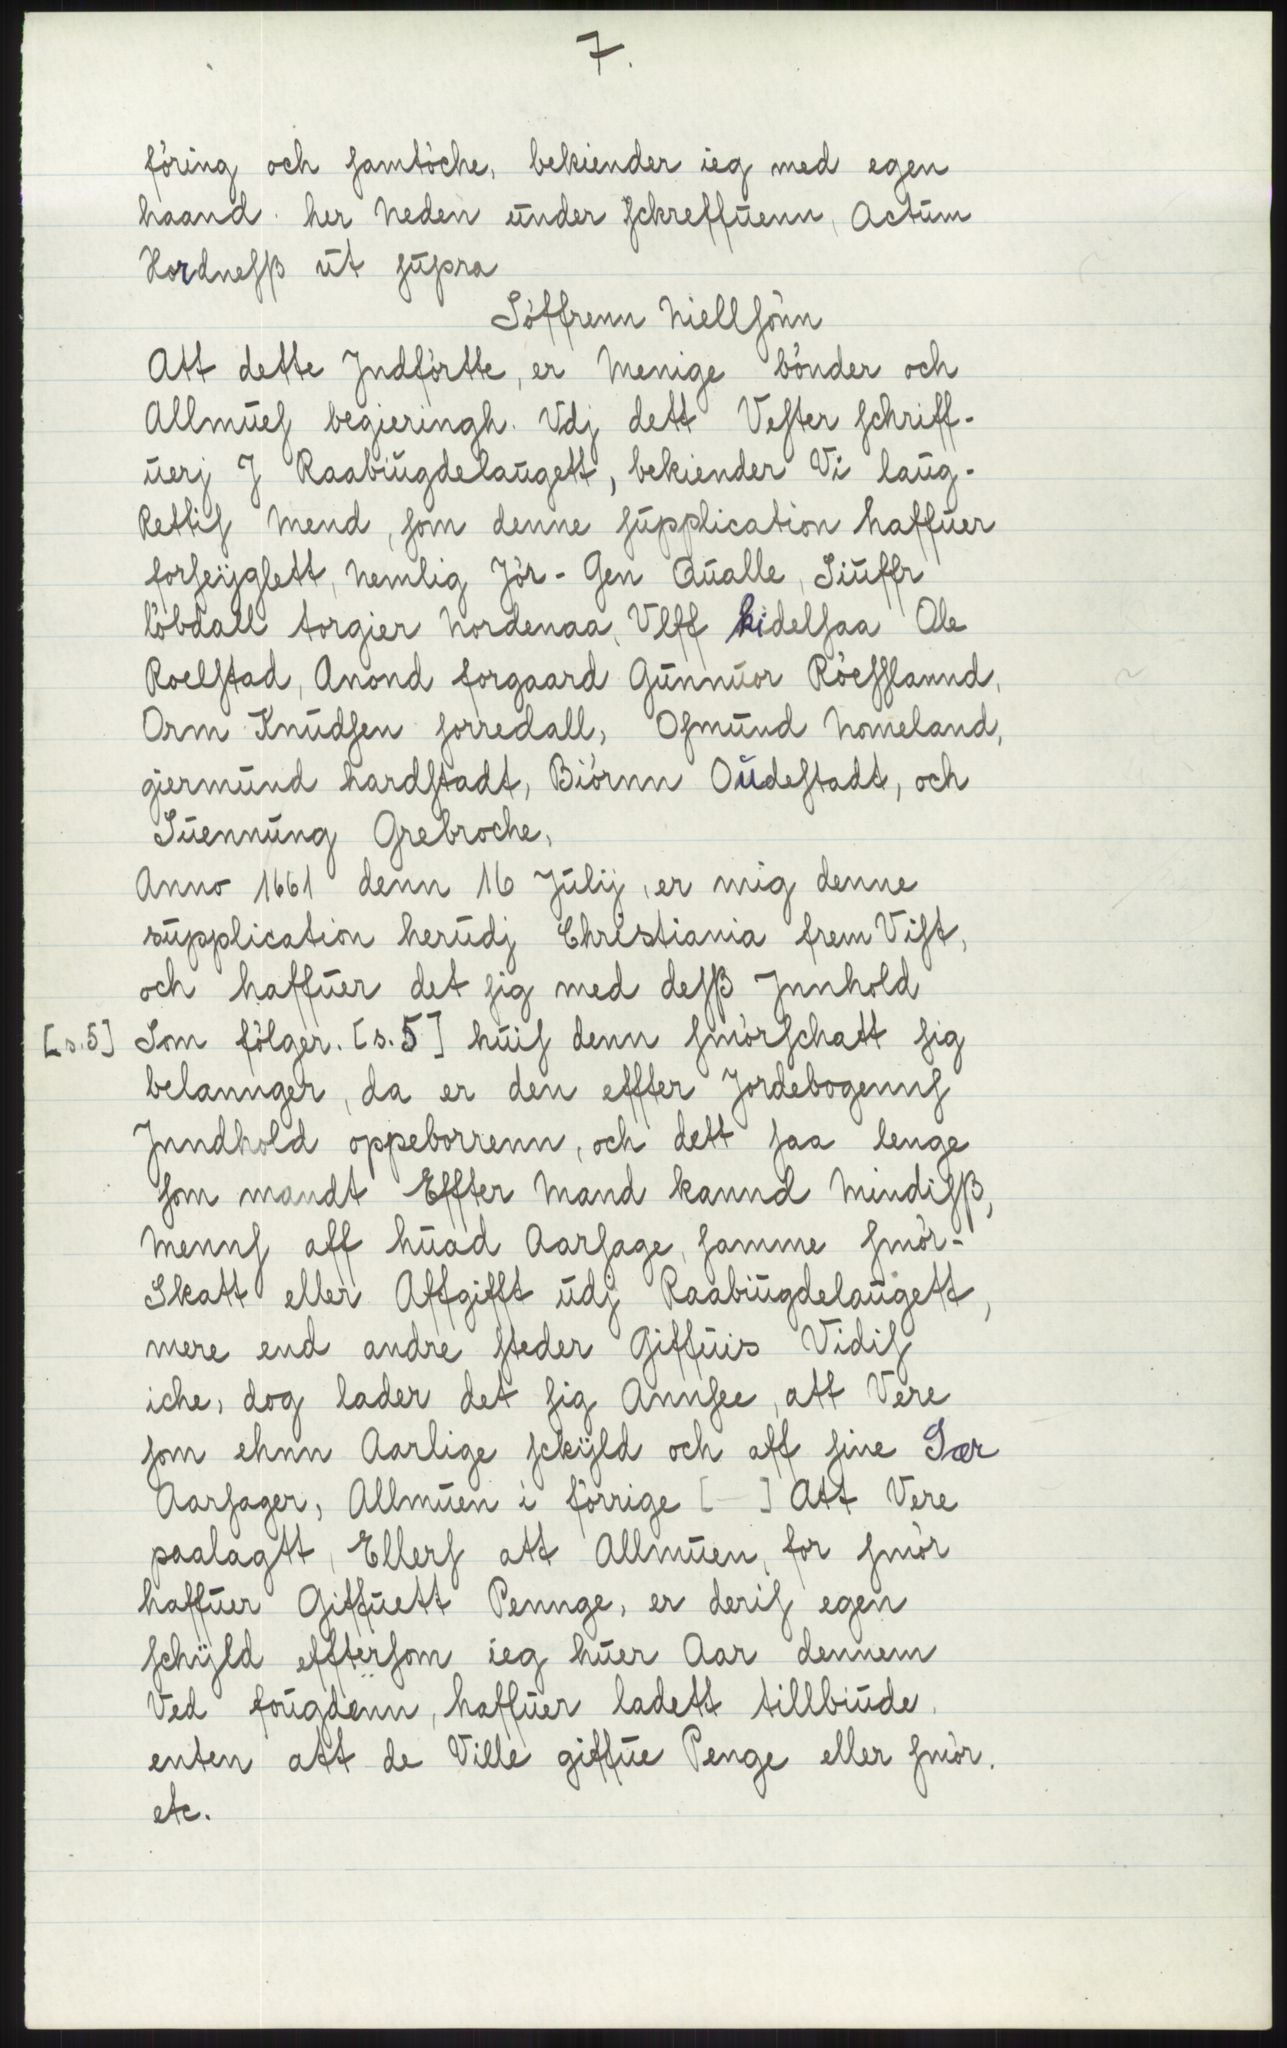 7.
föring och samtöche, bekiender ieg med egen
haand. her Neden under schreffuenn, Actum
Hordnesß ut supra
Söffrenn Niellsönn
Att dette Jndförtte, er Menige bönder och
Allmues begieringh. Vdj dett Vester schriff-
uerj J Raabiugdelaugett, bekiender Vi laug-
Rettis Mend, som denne supplication haffuer
forseyglett, Nemlig Jör-Gen Qualle, Siuffr
löbdall torgier Nordenaa, Vlff kidelsaa Ole
Roelstad, Anond forgaard Gunnuor Röesslannd,
Orm Knudsen sorredall, Osmund Nomeland,
giermund hardstadt, Biörnn Oudestadt, och
Suennung Grebroche,
Anno 1661 denn 16 Julij, er mig denne
supplication herudj Christiania frem Vist,
och haffuer det sig med desß Jnnhold
[s.5] Som fölger. [s.5] huis denn smörschatt sig
belannger, da er den effter Jordebogenns
Jnndhold oppeborrenn, och dett saa lenge
som mandt Effter Mand kannd Mindisß,
Menns aff huad Aarsage, samme smör-
Skatt eller Affgifft udj Raabiugdelaugett,
mere end andre steder Giffuis Vidis
iche, dog lader det sig Annsee, att Vere
som ehnn Aarlige sckyld och aff sine Sær
Aarsager, Allmuen i förrige [ - ] Att Vere
paalagtt, Ellers att Allmuen, for smör
haffuer Giffuett Pennge, er deris egen
schyld effterson ieg huer Aar dennem
Ved fougdenn, haffuer ladett tillbiude,
enten att de Ville giffue Penge eller smör.
etc.